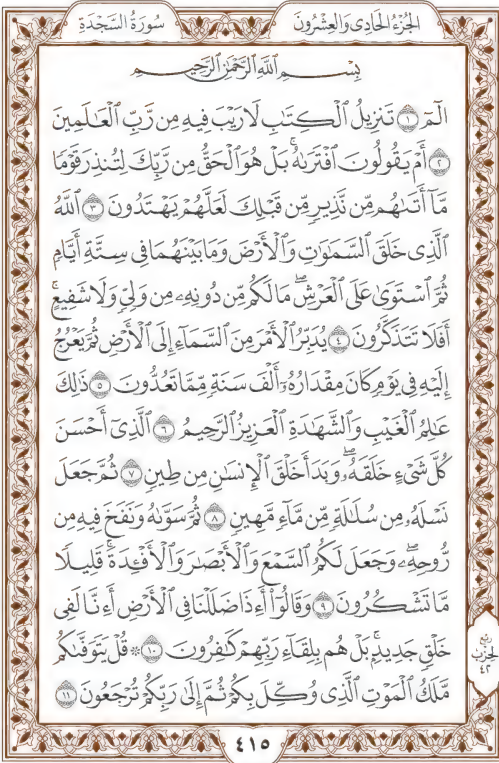 سُورَةُ السَّجْدَةِ
الجُزْءُ الحَادِي وَالعِشْرُونَ
بِسْمِ اللَّهِ الرَّحْمَٰنِ الرَّحِيمِ
الٓمٓ ١ تَنزِيلُ ٱلْكِتَٰبِ لَا رَيْبَ فِيهِ مِن رَّبِّ ٱلْعَٰلَمِينَ
٢ أَمْ يَقُولُونَ ٱفْتَرَىٰهُ ۚ بَلْ هُوَ ٱلْحَقُّ مِن رَّبِّكَ لِتُنذِرَ قَوْمًا
مَّآ أَتَىٰهُم مِّن نَّذِيرٍ مِّن قَبْلِكَ لَعَلَّهُمْ يَهْتَدُونَ ٣ ٱللَّهُ
ٱلَّذِى خَلَقَ ٱلسَّمَٰوَٰتِ وَٱلْأَرْضَ وَمَا بَيْنَهُمَا فِى سِتَّةِ أَيَّامٍ
ثُمَّ ٱسْتَوَىٰ عَلَى ٱلْعَرْشِ ۖ مَا لَكُم مِّن دُونِهِۦ مِن وَلِىٍّ وَلَا شَفِيعٍ ۚ
أَفَلَا تَتَذَكَّرُونَ ٤ يُدَبِّرُ ٱلْأَمْرَ مِنَ ٱلسَّمَآءِ إِلَى ٱلْأَرْضِ ثُمَّ يَعْرُجُ
إِلَيْهِ فِى يَوْمٍ كَانَ مِقْدَارُهُۥٓ أَلْفَ سَنَةٍ مِّمَّا تَعُدُّونَ ٥ ذَٰلِكَ
عَٰلِمُ ٱلْغَيْبِ وَٱلشَّهَٰدَةِ ٱلْعَزِيزُ ٱلرَّحِيمُ ٦ ٱلَّذِىٓ أَحْسَنَ
كُلَّ شَىْءٍ خَلَقَهُۥ ۖ وَبَدَأَ خَلْقَ ٱلْإِنسَٰنِ مِن طِينٍ ٧ ثُمَّ جَعَلَ
نَسْلَهُۥ مِن سُلَٰلَةٍ مِّن مَّآءٍ مَّهِينٍ ٨ ثُمَّ سَوَّىٰهُ وَنَفَخَ فِيهِ مِن
رُّوحِهِۦ ۖ وَجَعَلَ لَكُمُ ٱلسَّمْعَ وَٱلْأَبْصَٰرَ وَٱلْأَفْـِٔدَةَ ۚ قَلِيلًا
مَّا تَشْكُرُونَ ٩ وَقَالُوٓا۟ أَءِذَا ضَلَلْنَا فِى ٱلْأَرْضِ أَءِنَّا لَفِى
خَلْقٍ جَدِيدٍۭ ۚ بَلْ هُم بِلِقَآءِ رَبِّهِمْ كَٰفِرُونَ ١٠ ۞ قُلْ يَتَوَفَّىٰكُم
مَّلَكُ ٱلْمَوْتِ ٱلَّذِى وُكِّلَ بِكُمْ ثُمَّ إِلَىٰ رَبِّكُمْ تُرْجَعُونَ ١١
ربع
الحزب
٤٢
٤١٥